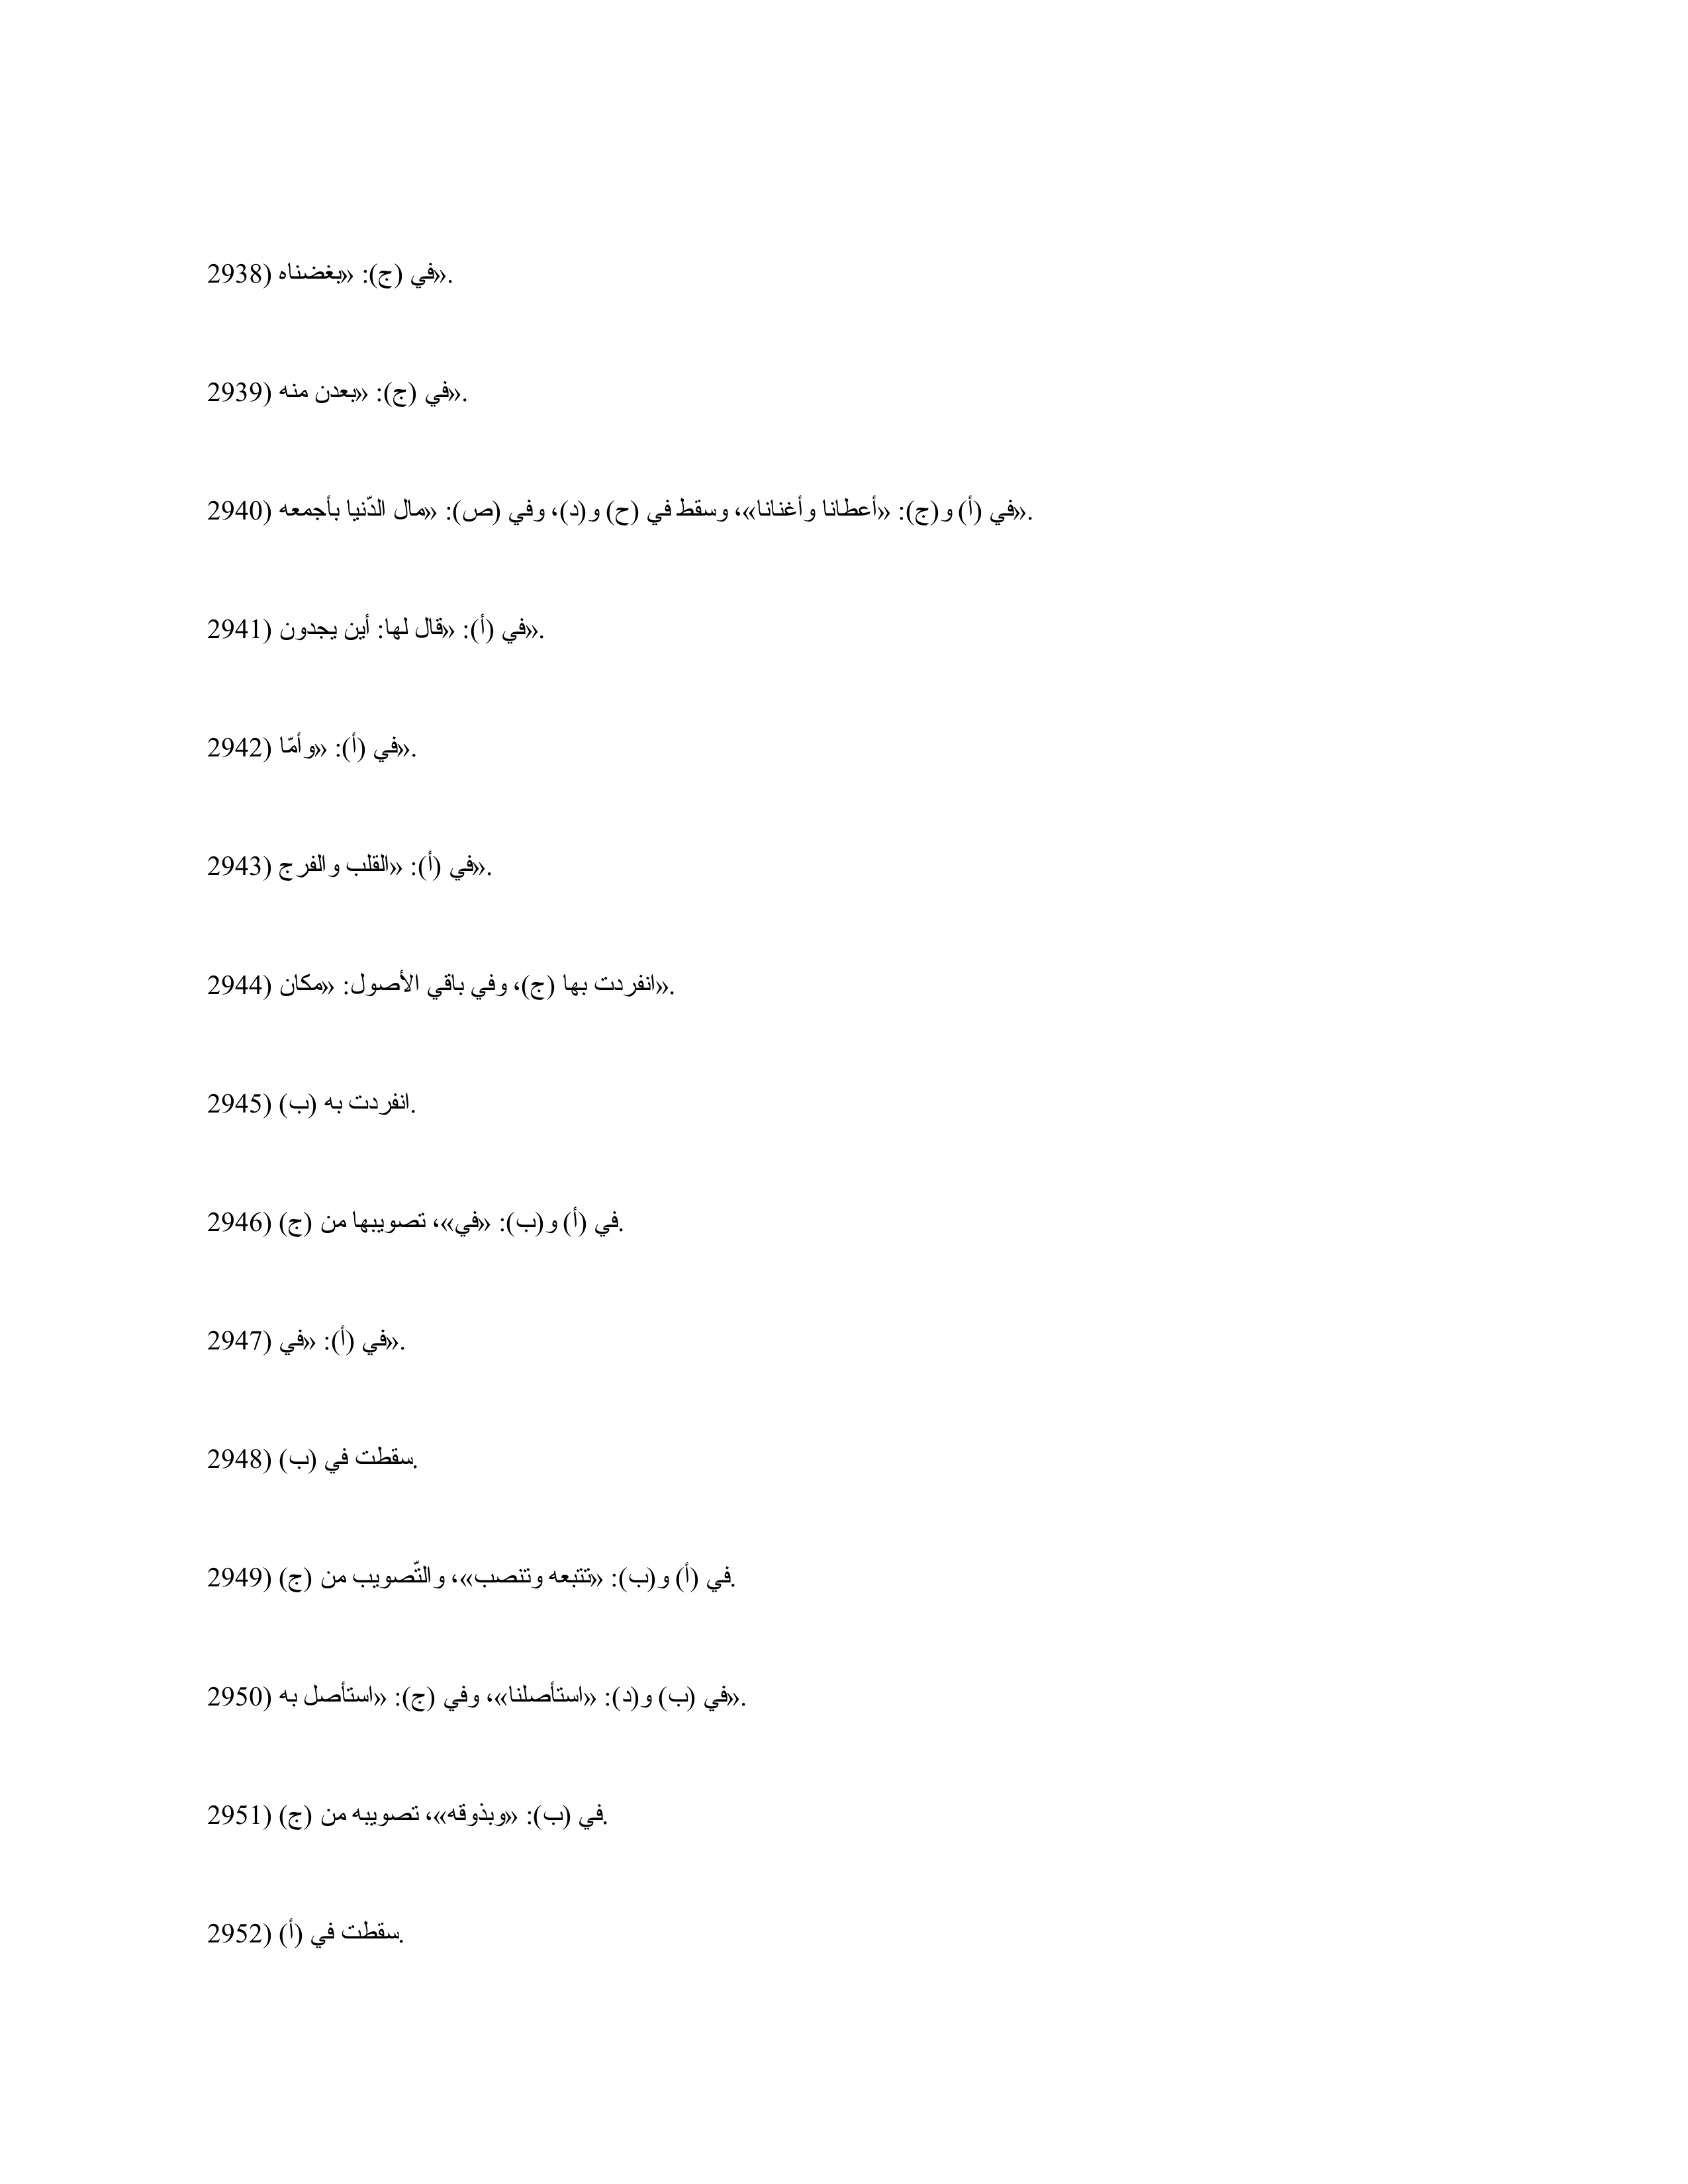 2938) في (ج): «بغضناه».
2939) في (ج): «بعدن منه».
2940) في (أ) و(ج): «أعطانا وأغنانا»، وسقط في (ح) و(د)، وفي (ص): «مال الدّنيا بأجمعه».
2941) في (أ): «قال لها: أين يجدون».
2942) في (أ): «وأمّا».
2943) في (أ): «القلب والفرج».
2944) انفردت بها (ج)، وفي باقي الأصول: «مكان».
2945) انفردت به (ب).
2946) في (أ) و(ب): «في»، تصويبها من (ج).
2947) في (أ): «في».
2948) سقطت في (ب).
2949) في (أ) و(ب): «تتبعه وتنصب»، والتّصويب من (ج).
2950) في (ب) و(د): «استأصلنا»، وفي (ج): «استأصل به».
2951) في (ب): «وبذوقه»، تصويبه من (ج).
2952) سقطت في (أ).